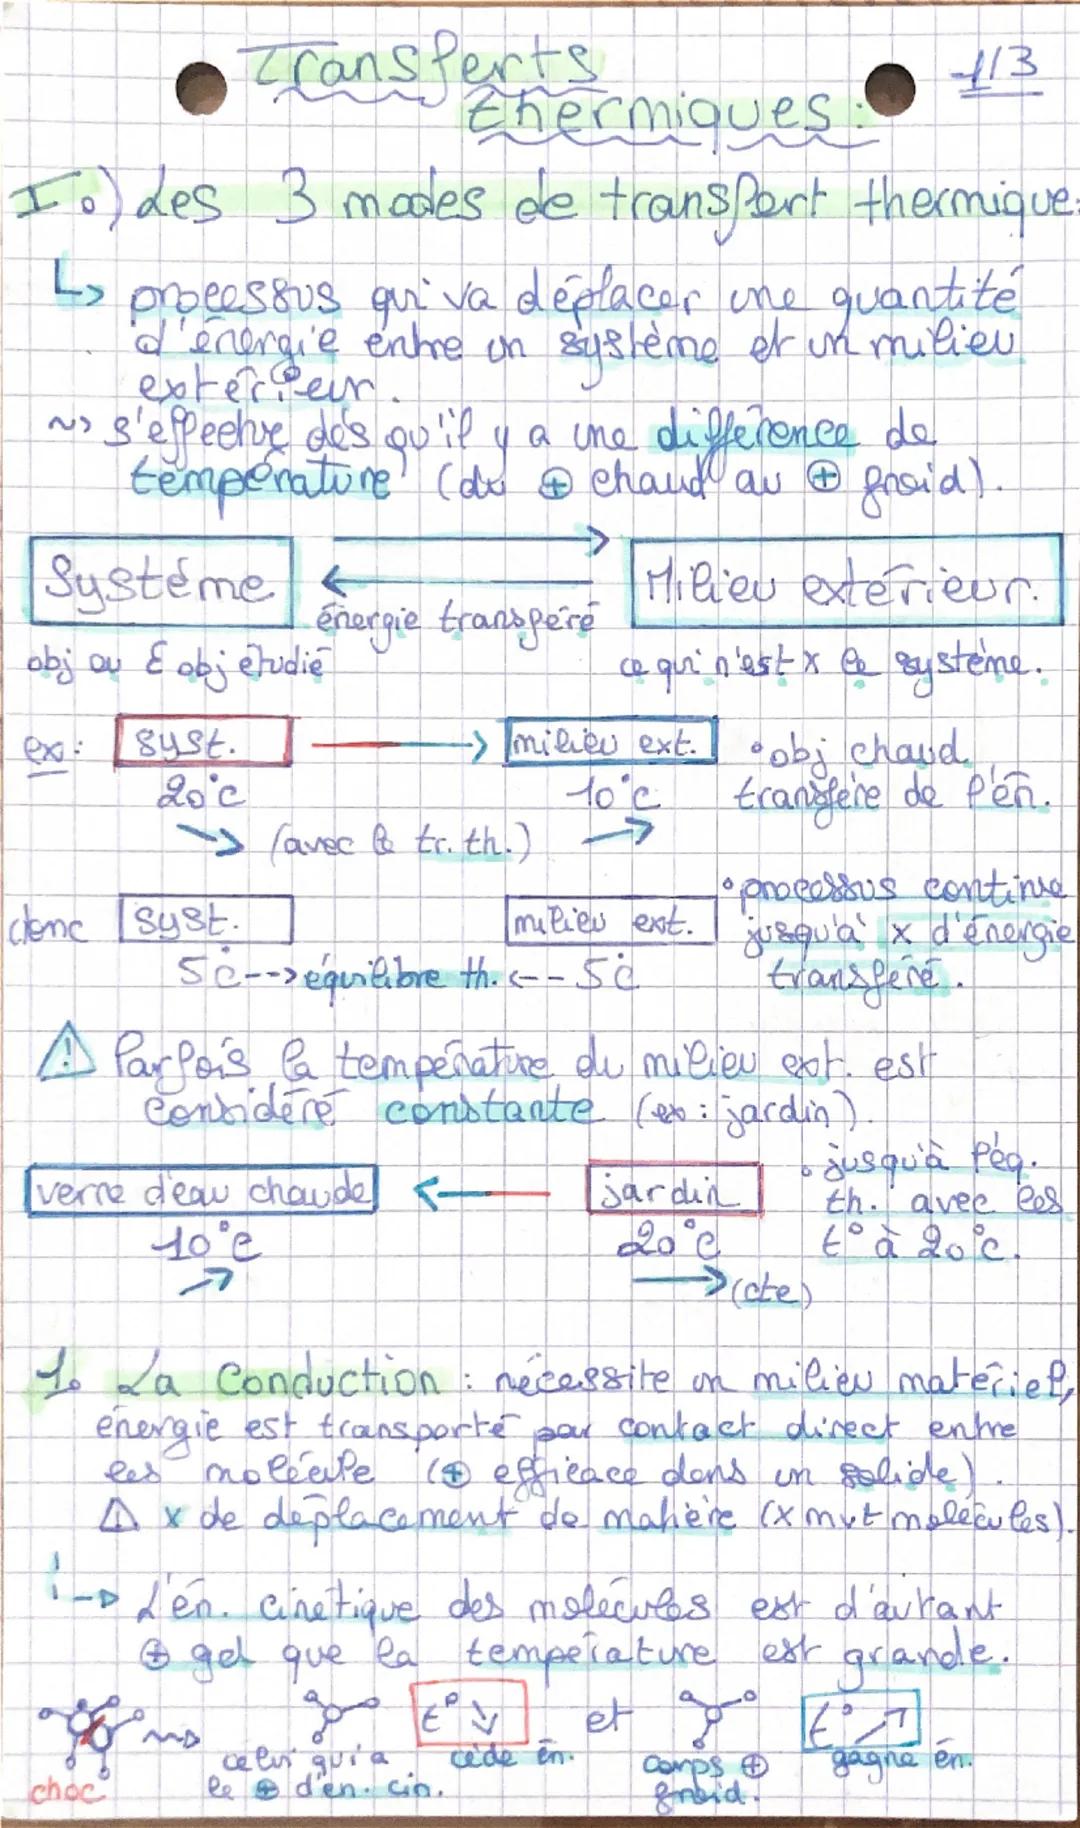 Transferts 1/3
thermiques :
I.) Les 3 modes de transfert thermique:
↳ processus qui va déplacer une quantité
d'énergie entre un système et un milieu
extérieur.
~> s'effectue dès qu'il y a une différence de
température (du ⊕ chaud au ⊕ froid).
Système Milieu extérieur.
énergie transféré
obj ou E obj étudié ce qui n'est x le système.
ex: syst. → milieu ext. • obj chaud
20°c 10°c transfère de l'én.
↘ (avec le tr. th.) ↗
• processus continue
donc syst. milieu ext. jusqu'à x d'énergie
5°c --> équilibre th. <-- 5°c transféré.
⚠ Parfois la température du milieu ext. est
considéré constante (ex : jardin).
• jusqu'à l'éq.
verre d'eau chaude ← jardin th. avec les
10°c 20°c t° à 20°c.
↗ → (cte)
1. La Conduction : nécessite un milieu matériel,
énergie est transporté par contact direct entre
les molécule (⊕ efficace dans un solide).
⚠ x de déplacement de matière (x mvt molécules).
↳ L'én. cinétique des molécules est d'autant
⊕ gd que la température est grande.
~> t° ↘ et t° ↗
celui qui a cède én. corps ⊕ gagne én.
choc le ⊕ d'én. cin. froid.